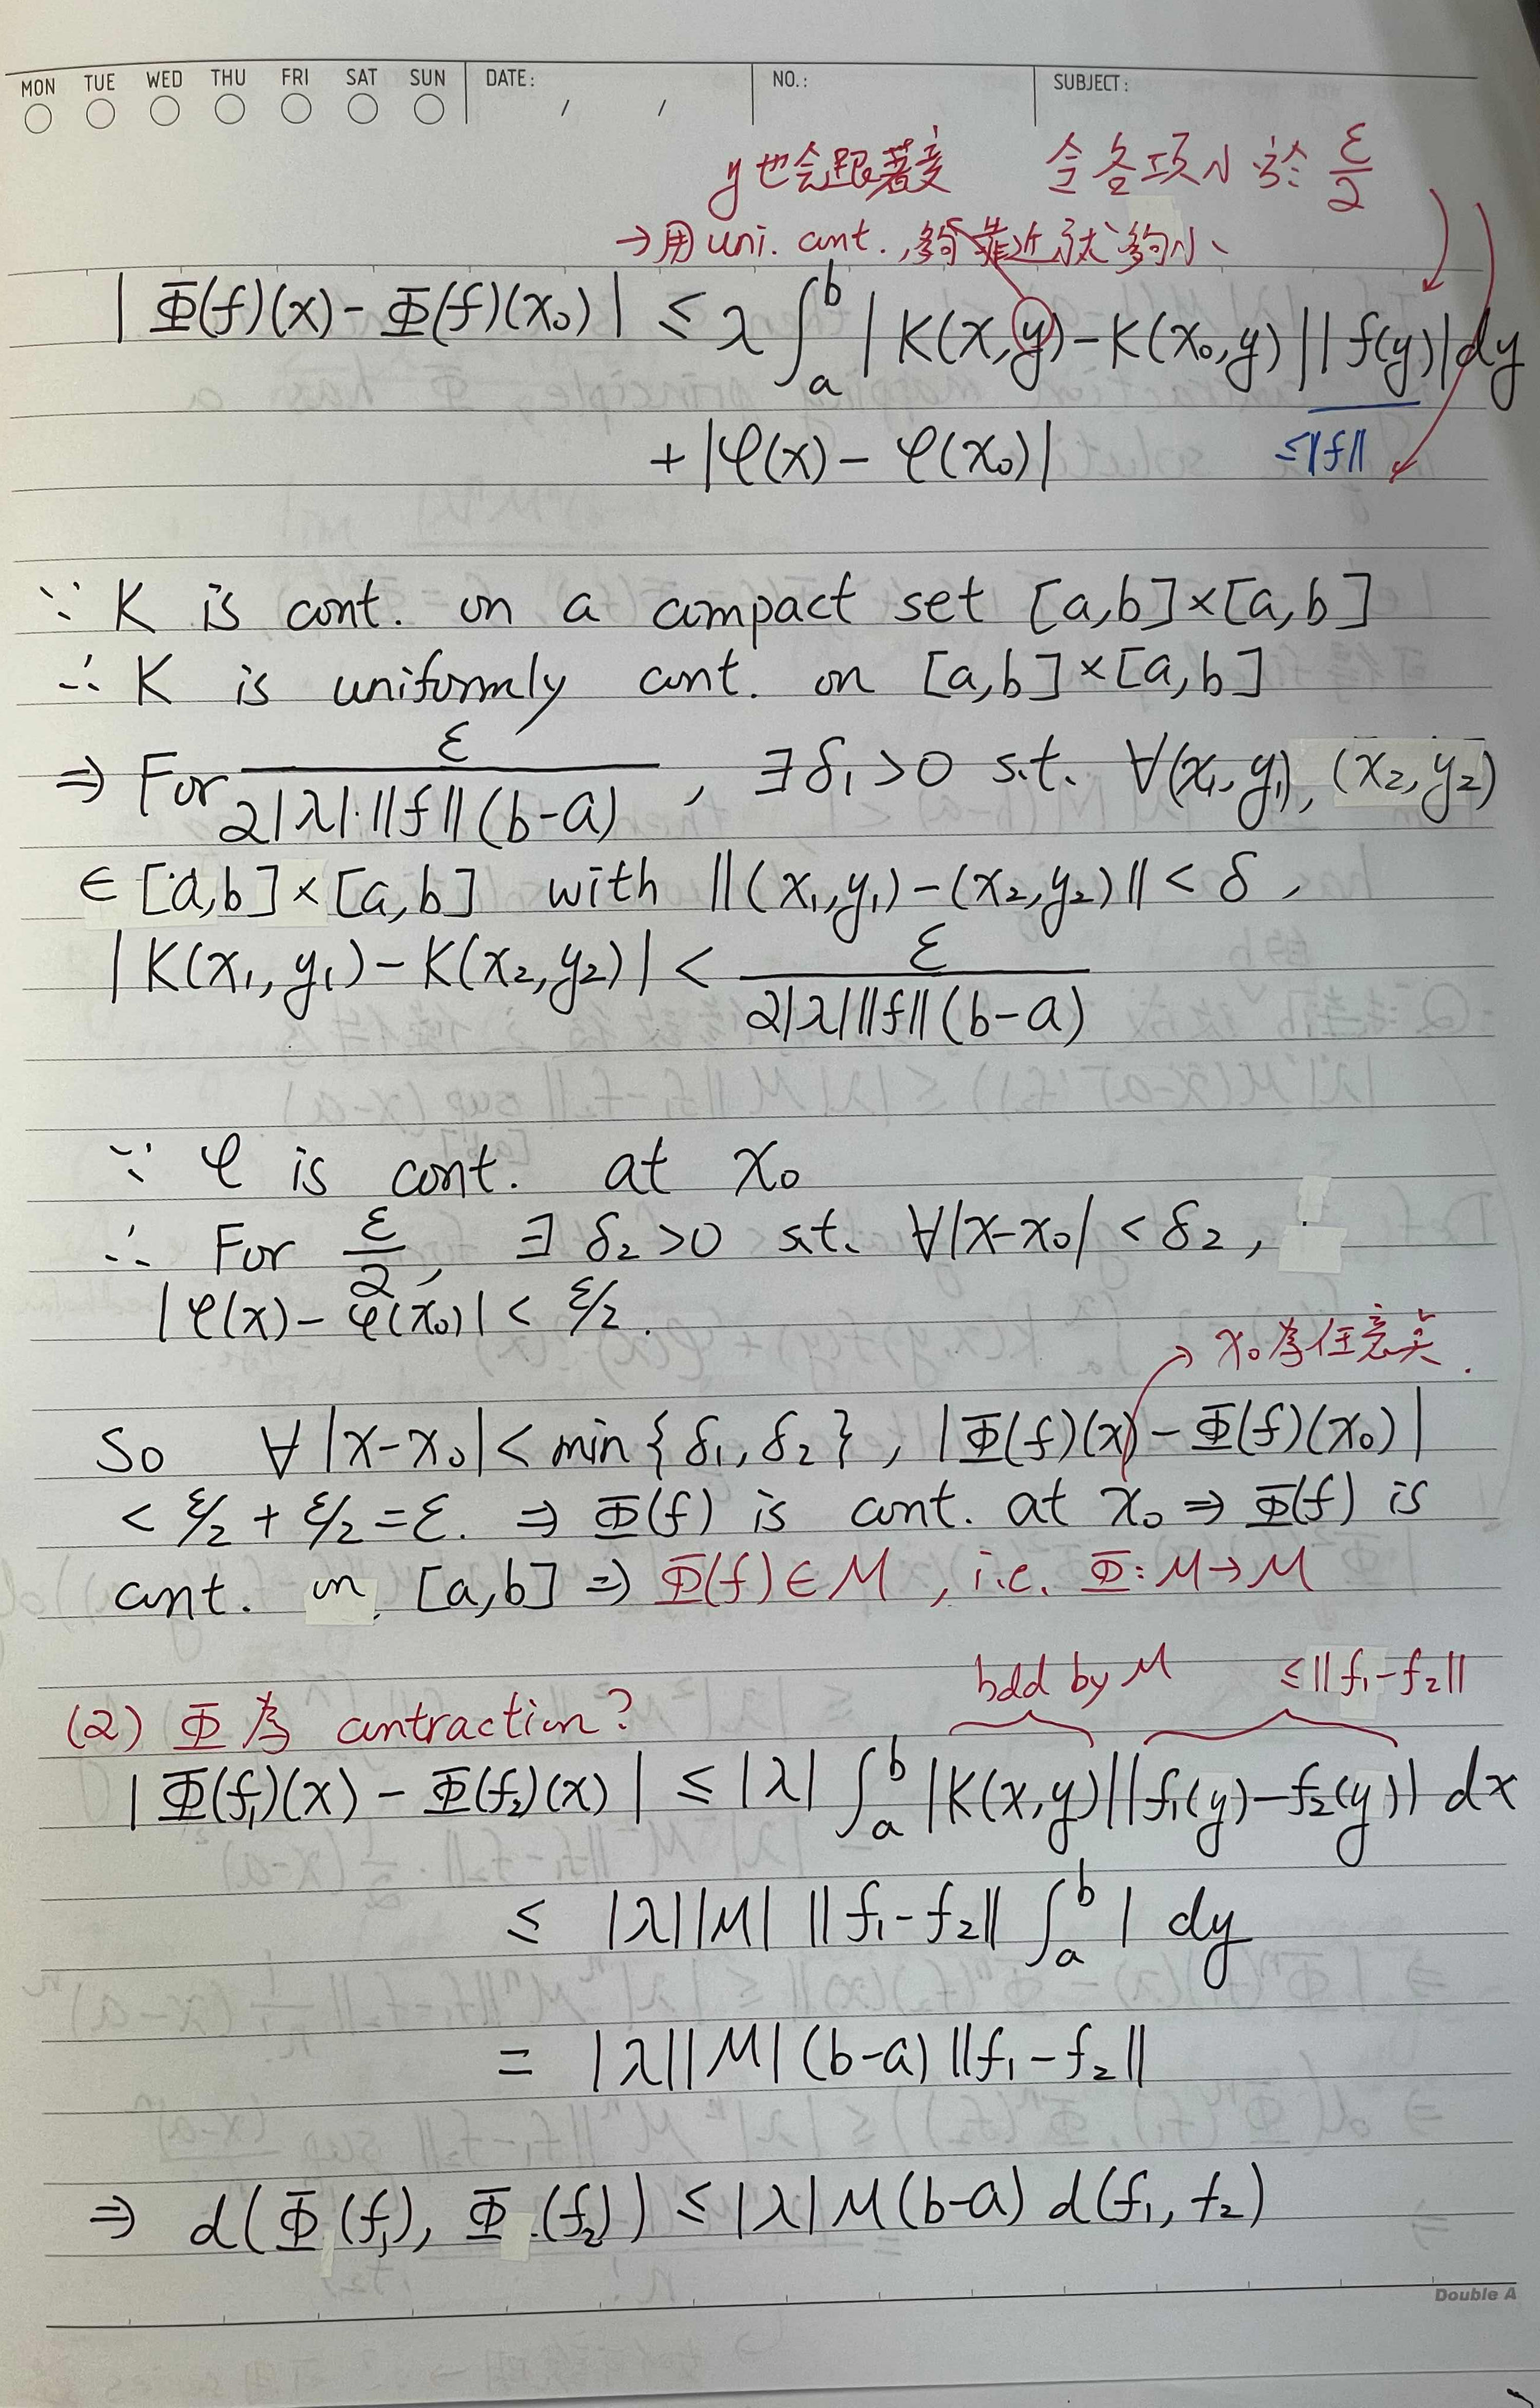 MON TUE WED THU FRI SAT SUN DATE: / / NO.: SUBJECT:
y也会跟著变 令各项小於 ε/2
→用 uni. cont., 夠靠近就夠小
|Φ(f)(x) - Φ(f)(x₀)| ≤ λ ∫_a^b |K(x,y) - K(x₀,y)||f(y)|dy
+ |φ(x) - φ(x₀)| ≤‖f‖
∵ K is cont. on a compact set [a,b]×[a,b]
∴ K is uniformly cont. on [a,b]×[a,b]
⇒ For ε/(2|λ|·‖f‖(b-a)), ∃ δ₁>0 s.t. ∀(x₁,y₁), (x₂,y₂)
∈ [a,b]×[a,b] with ‖(x₁,y₁)-(x₂,y₂)‖ < δ,
|K(x₁,y₁) - K(x₂,y₂)| < ε/(2|λ|‖f‖(b-a))
∵ φ is cont. at x₀
∴ For ε/2, ∃ δ₂>0 s.t. ∀|x-x₀| < δ₂,
|φ(x) - φ(x₀)| < ε/2.
x₀為任意点.
So ∀ |x-x₀| < min{δ₁, δ₂}, |Φ(f)(x) - Φ(f)(x₀)|
< ε/2 + ε/2 = ε. ⇒ Φ(f) is cont. at x₀ ⇒ Φ(f) is
cont. on [a,b] ⇒ Φ(f) ∈ M, i.e. Φ: M→M
bdd by M ≤‖f₁-f₂‖
(2) Φ為 contraction?
|Φ(f₁)(x) - Φ(f₂)(x)| ≤ |λ| ∫_a^b |K(x,y)||f₁(y)-f₂(y)| dx
≤ |λ||M| ‖f₁-f₂‖ ∫_a^b 1 dy
= |λ||M| (b-a) ‖f₁-f₂‖
⇒ d(Φ(f₁), Φ(f₂)) ≤ |λ| M (b-a) d(f₁, f₂)
Double A